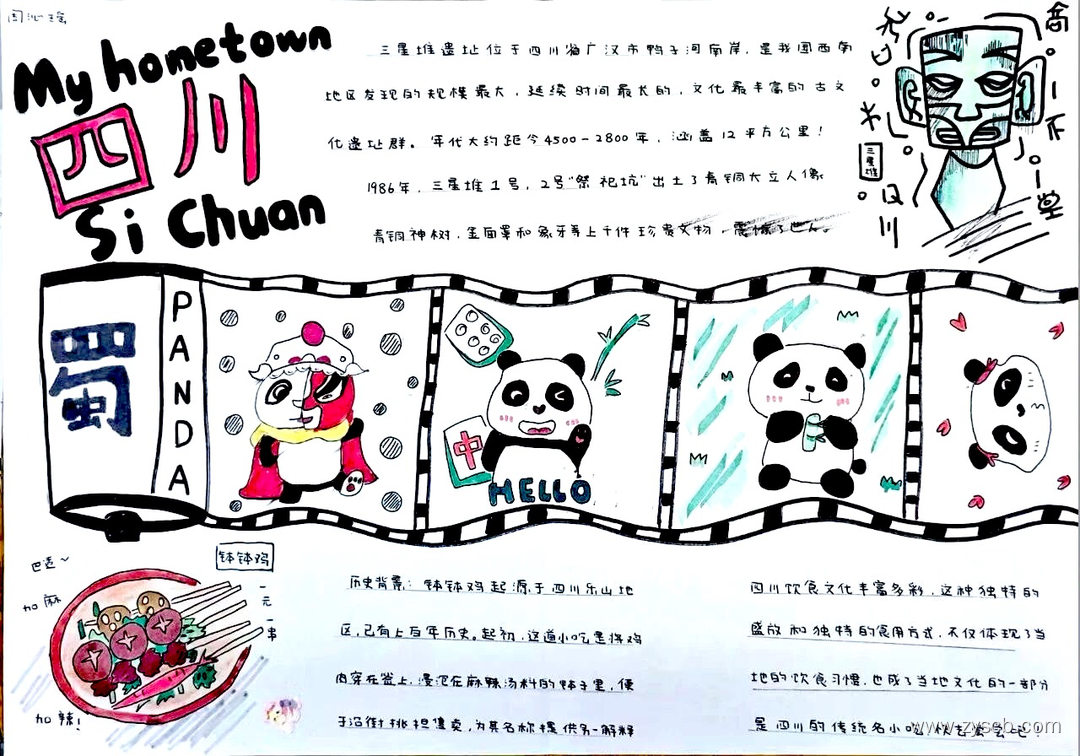 My hometown
四川
Si Chuan
三星堆遗址位于四川省广汉市鸭子河南岸，是我国西南
地区发现的规模最大，延续时间最长的，文化最丰富的古文
化遗址群。年代大约距今4500-2800年，涵盖12平方公里！
1986年，三星堆1号，2号"祭祀坑"出土了青铜大立人像
青铜神树，金面罩和象牙等上千件珍贵文物
三星堆
蜀
PANDA
中
HELLO
巴适~
加麻
加辣！
钵钵鸡
一元一串
历史背景：钵钵鸡起源于四川乐山地
区，已有上百年历史。起初，这道小吃是将鸡
肉穿在签上，浸泡在麻辣汤料的钵子里，便
于沿街挑担售卖，为其名称提供另一解释
四川饮食文化丰富多彩，这种独特的
盛放和独特的食用方式，不仅体现了当
地的饮食习惯，也成了当地文化的一部分
是四川的传统名小吃
www.zyseb.com